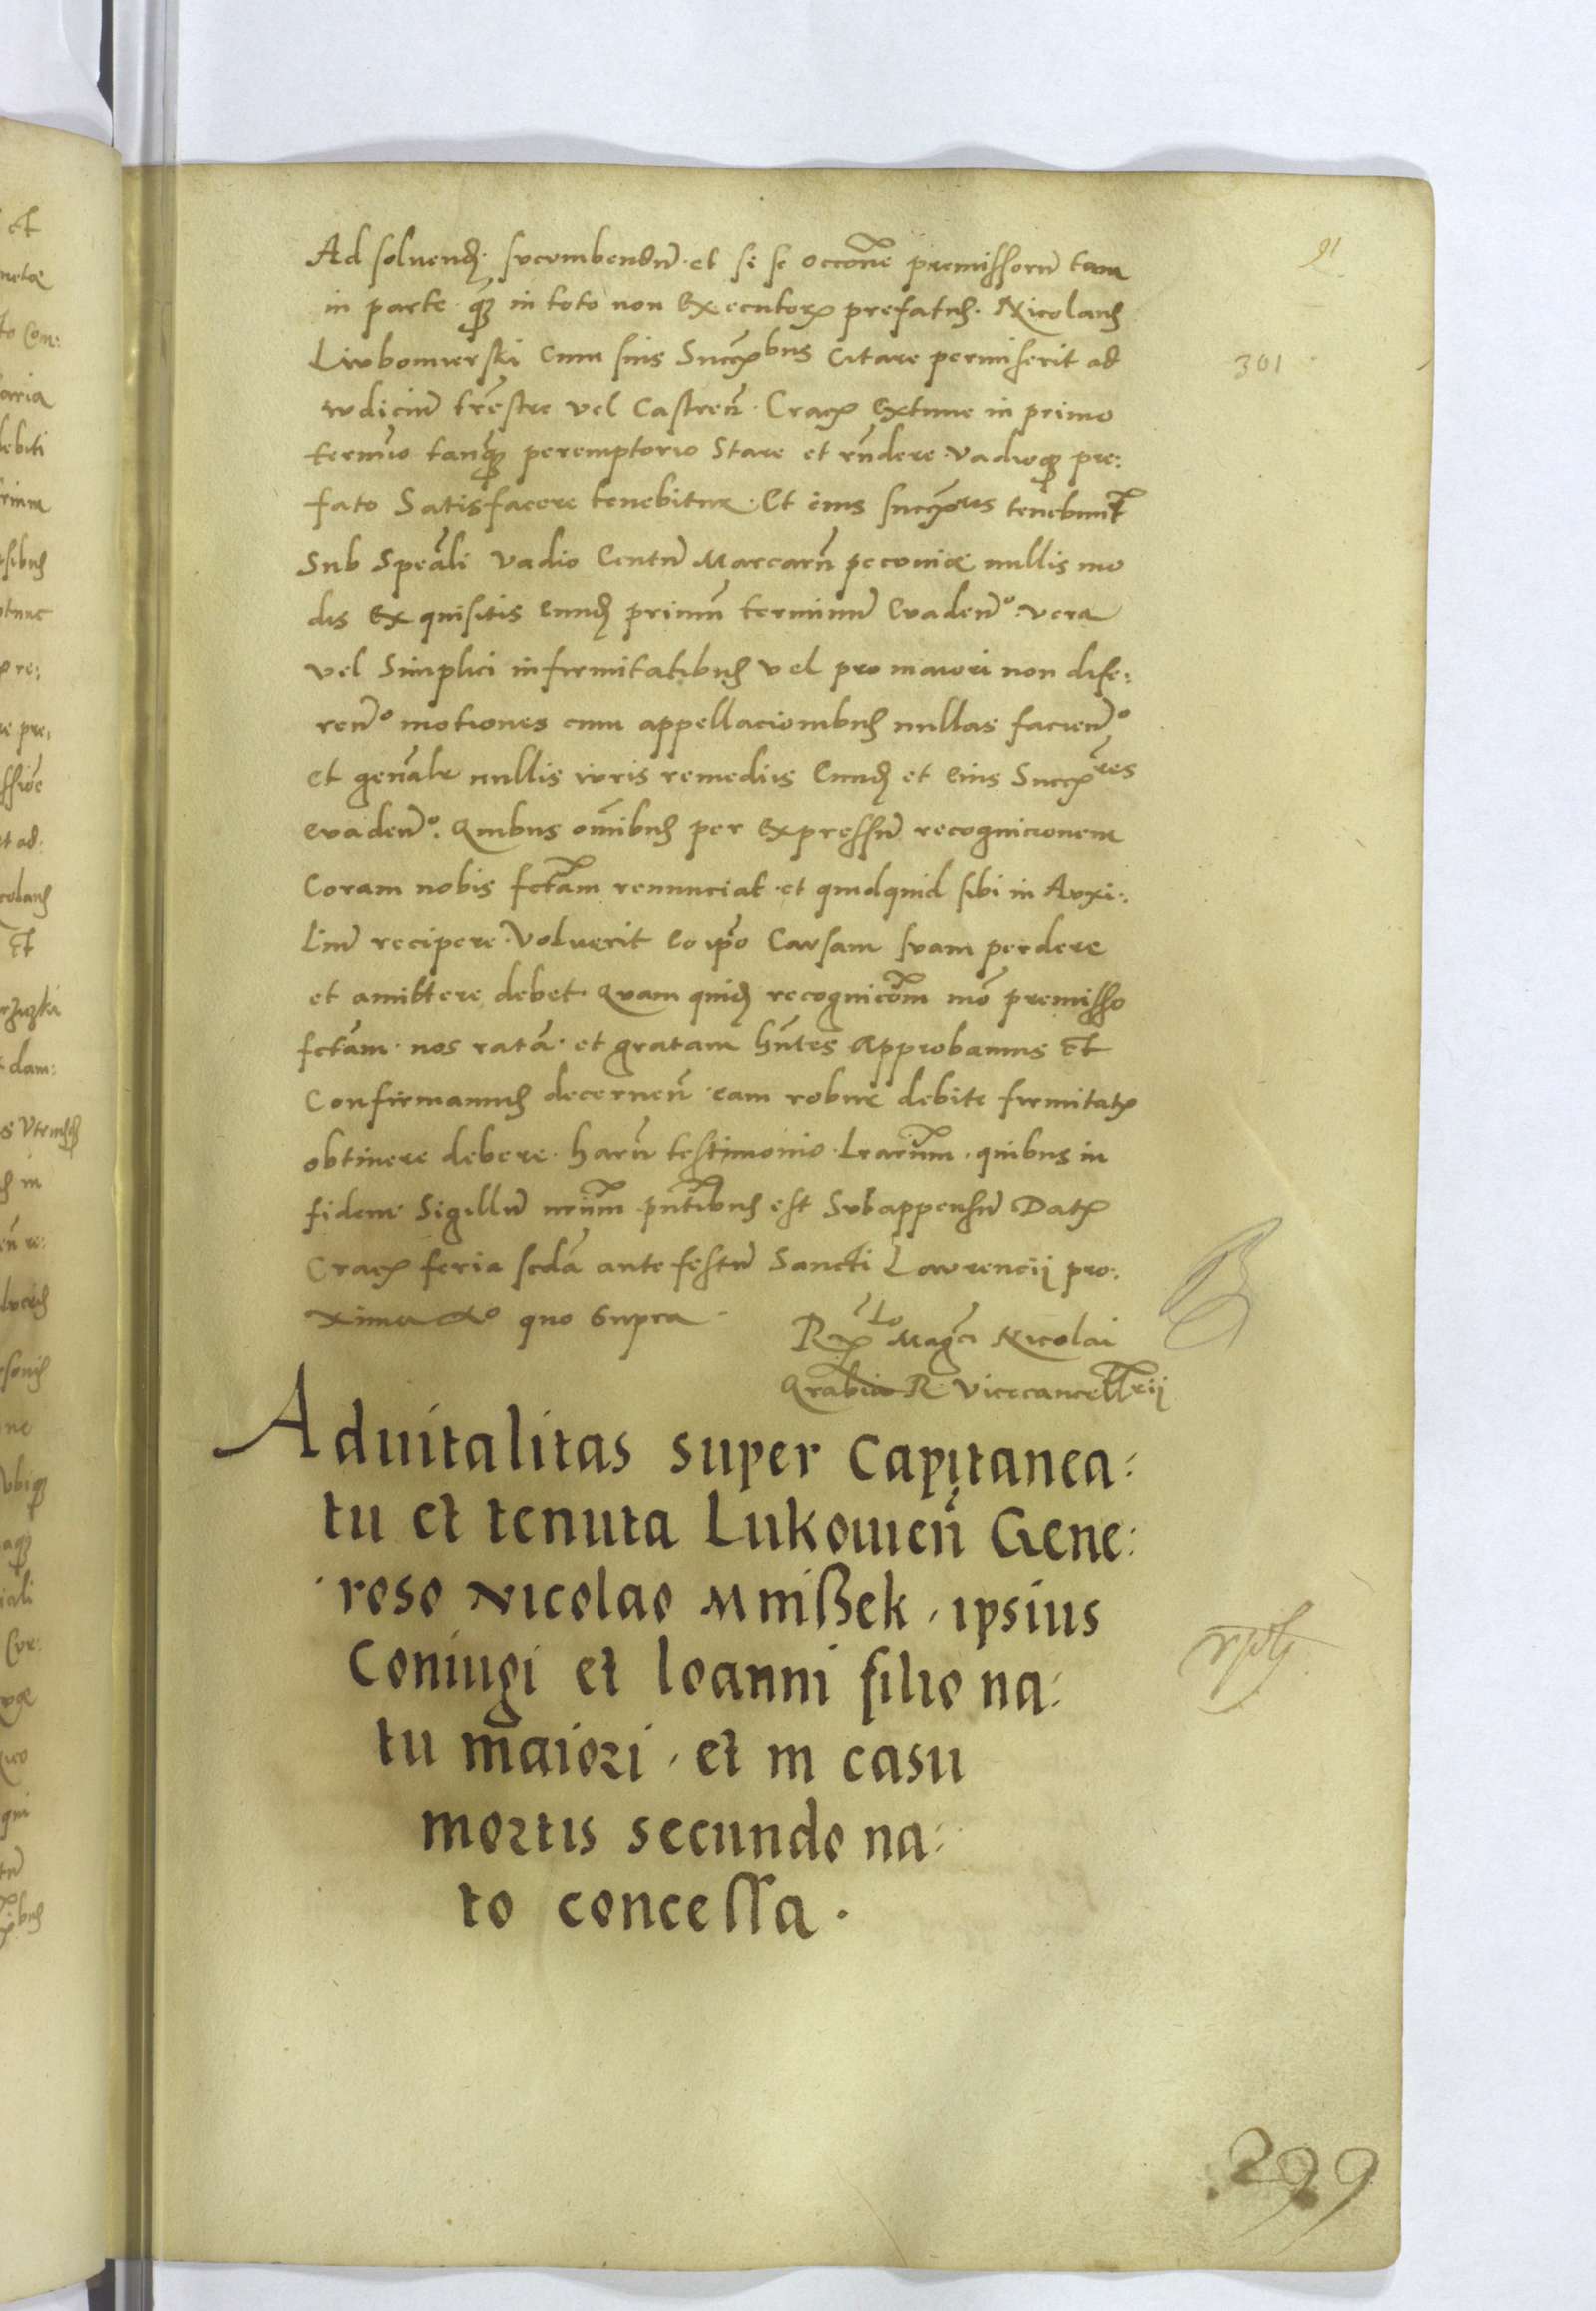 91
301
Ad soluend. sucumbendũ. et si se occõne premissorũ tam
in parte q̃ʒ in toto non Executorꝫ prefatus. Nicolaus
Liubomierski cum suis Succꝫbus citare permiserit ad
iudiciũ trẽstre vel Castreñ. Cracꝫ extunc in primo
termĩo tanqʒ peremptorio Stare et rñdere. vadioqʒ pre:
fato Satisfacere tenebitur. Et eius succꝫores tenebunt̃
Sub Speãli vadio Centũ Marcarũ pecunie nullis mo
dis exquisitis eund primũ terminũ Euadeñº. vera
vel Simplici infirmitatibus vel pro maiori non dife:
reñº motiones cum appellacionibus nullas facieñº
et genãlr nullis iuris remediis eund et eius Succꝫres
euadeñº. Quibus om̃ibus per expressũ recognicionem
Coram nobis fct̃am renunciat. et quidquid sibi in Auxi:
liũ recipere. Voluerit eo ip̃o Causam suam perdere
et amittere debet. Quam quid recognicõm mõ premisso
fctãm. nos ratã. et gratam hñtes Approbamus Et
Confirmamus decerneñ. eam robur debite firmitatꝫ
obtinere debere. harũ testimonio. Lrarũm. quibus in
fidem Sigillũ nrũm. pñtibus est Subappensũ Datꝫ
Cracꝫ feria scdã ante festũ Sancti Lawrencij pro:
xima Aº quo Supra
Rꝫlo Magci Nicolai
Grabia R. Vicecancellrij
Aduitalitas super Capitanea:
tu et tenuta Lukouieñ Gene:
roso Nicolao Mnißek, ipsius
Coniugi et Ioanni filio na:
tu maiori, et in casu
mortis secundo na:
to concessa.
299